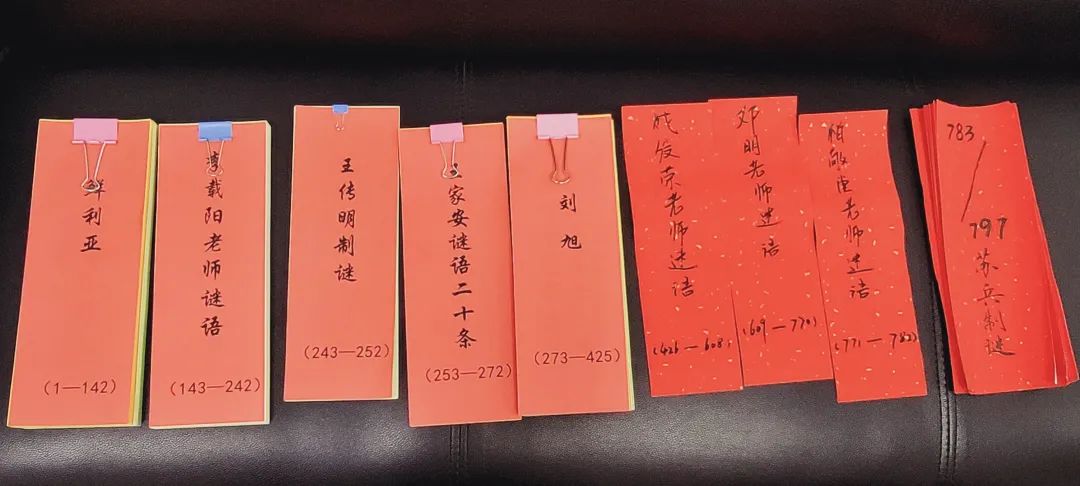 利亚
（1—142）
载阳老师谜语
（143—242）
王传明制谜
（243—252）
家安谜语二十条
（253—272）
刘旭
（273—425）
发荣老师迷语
（426—608）
邓明老师迷语
（609—770）
柏敬堂老师迷语
（771—782）
783/797
苏兵制谜